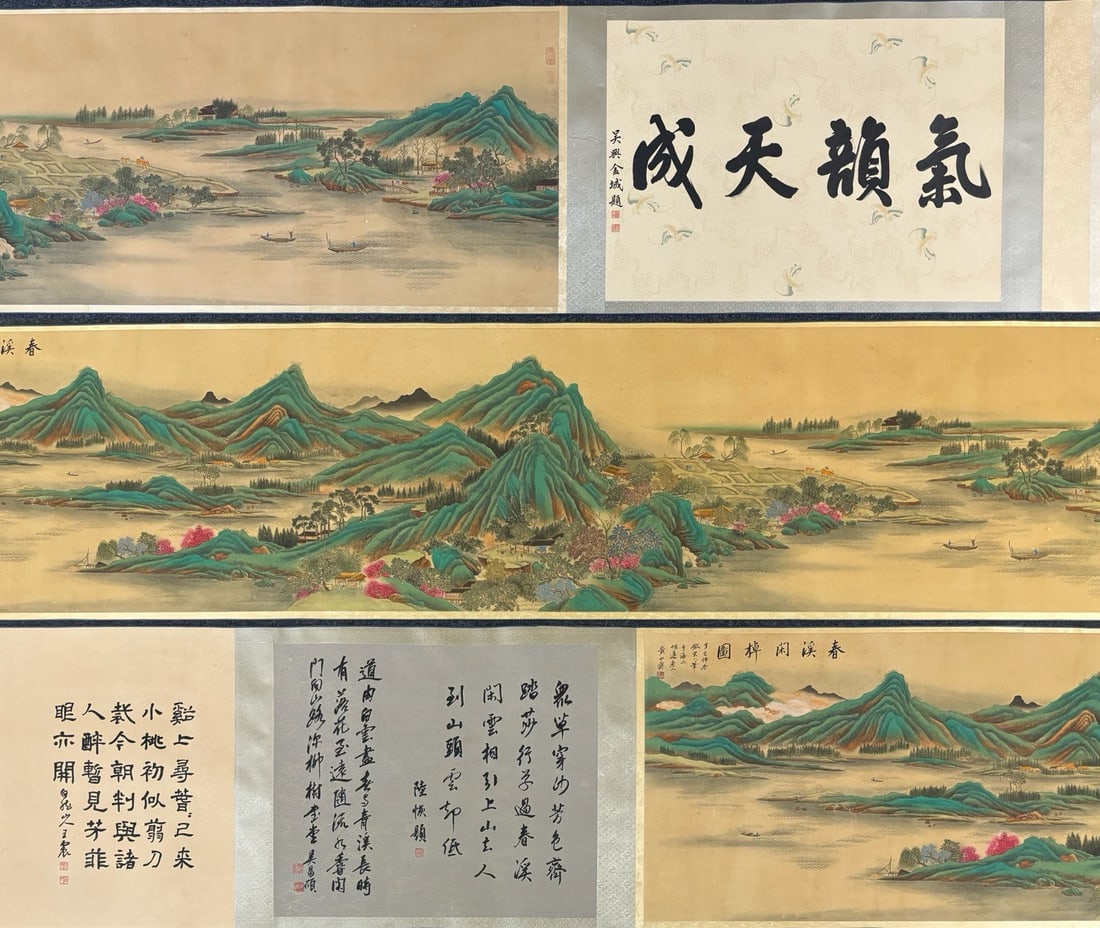 氣韻天成
吳興金城題
春溪
春溪閑棹圖
丁巳仲冬
于海上
黃山壽
衆草穿沙芳色齊
踏莎行草過春溪
閑雲相引上山去人
到山頭雲却低
陸恢題
道由白雲盡春與青溪長時
有落花至遠隨流水香閑
門向山路深柳書堂
吳昌碩
谿上尋萅〻已來
小桃初似翦刀
裁今朝判與諸
人醉暫見芳菲
眼亦開
白龍山人王震